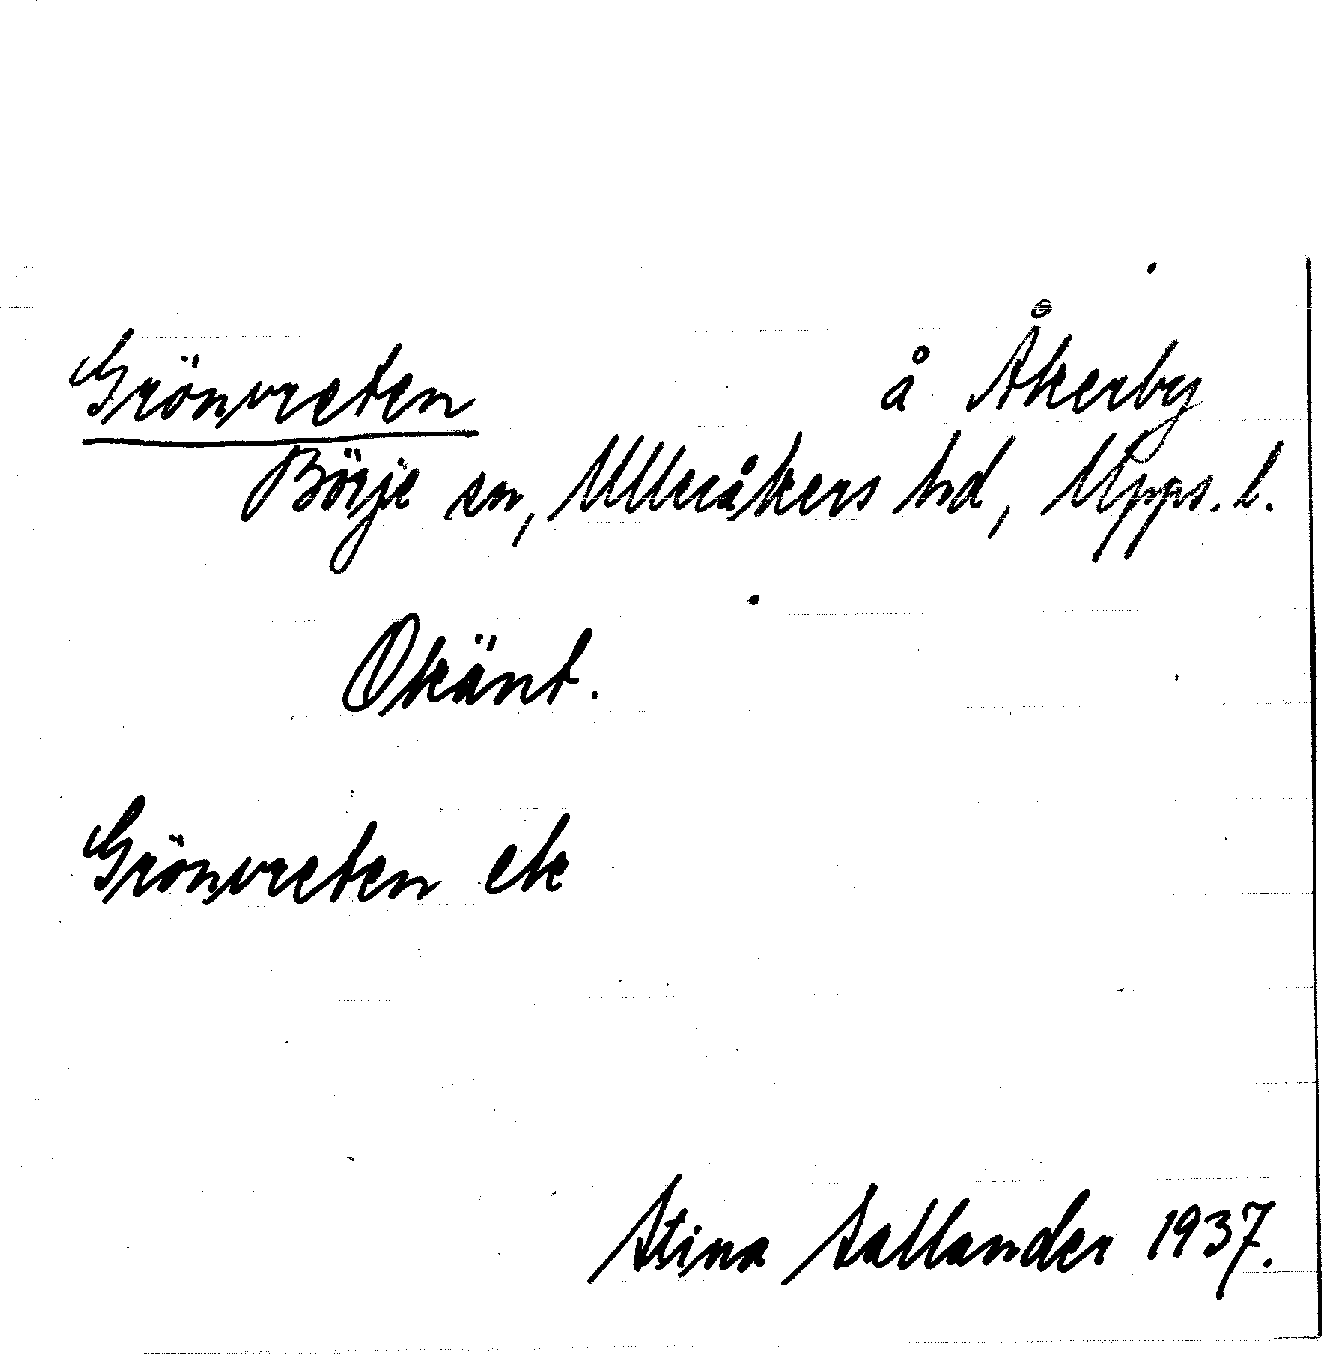 Grönvreten å Åkerby
Börje sn, Ulleråkers hd, Upps. l.
Okänt.
Grönvreten ek
Stina Sallander 1937.